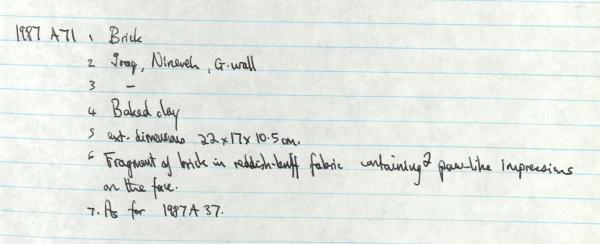 1987 A71 1 Brick
2 Iraq, Nineveh, G. wall
3 —
4 Baked clay
5 ext. dimensions 22 x 17 x 10.5 cm.
6 Fragment of brick in reddish-buff fabric containing 2 paw-like impressions
on the face.
7. As for 1987 A 37.